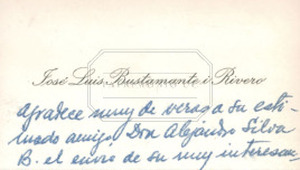 José Luis Bustamante i Rivero
agradece muy de veras a su esti-
mado amigo, Don Alejandro Silva
B. el envío de su muy interesan